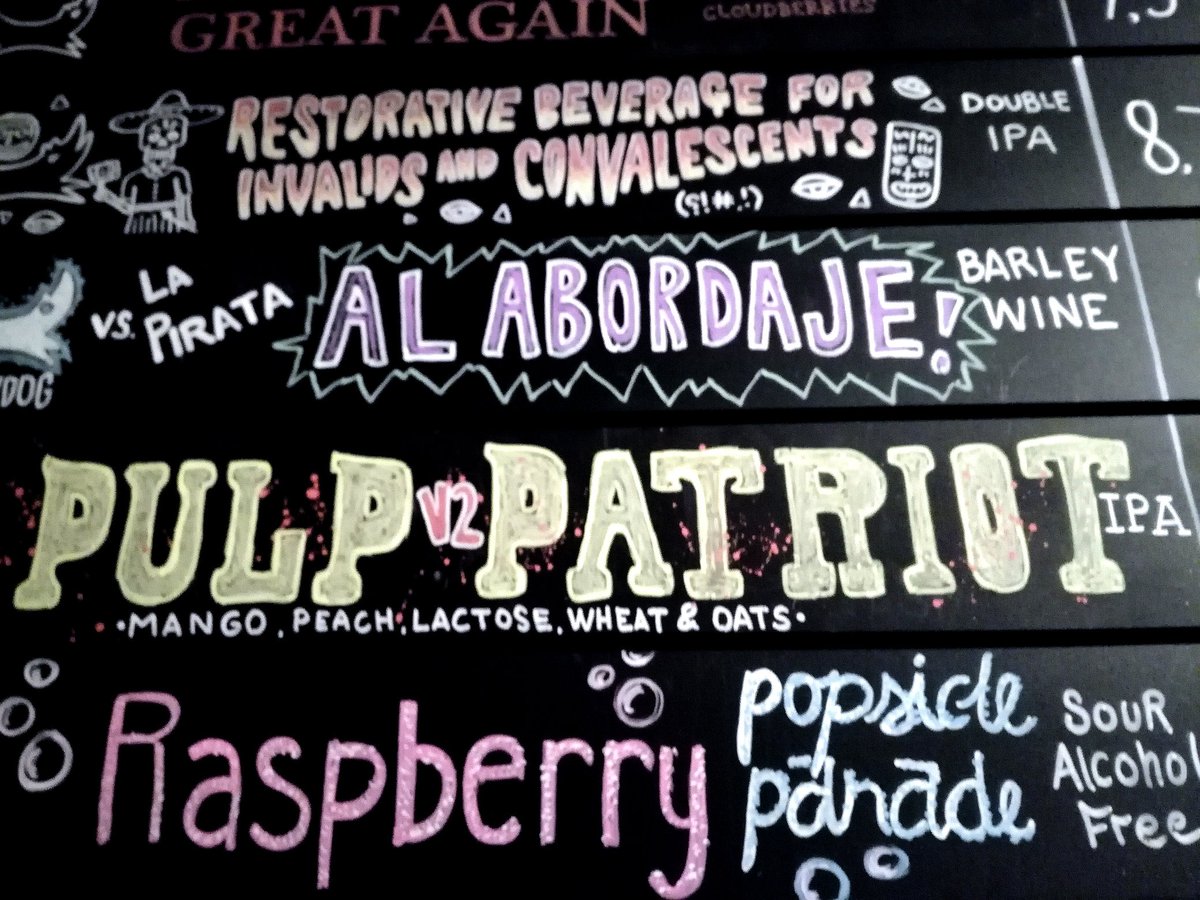 GREAT AGAIN
CLOUDBERRIES
RESTORATIVE BEVERAGE FOR
INVALIDS AND CONVALESCENTS
(?!#.!)
DOUBLE
IPA
8.
VS. LA
PIRATA
AL ABORDAJE!
BARLEY
WINE
DOG
PULP V2 PATRIOT IPA
·MANGO, PEACH, LACTOSE, WHEAT & OATS·
Raspberry
popsicle
parade
SOUR
Alcohol
Free